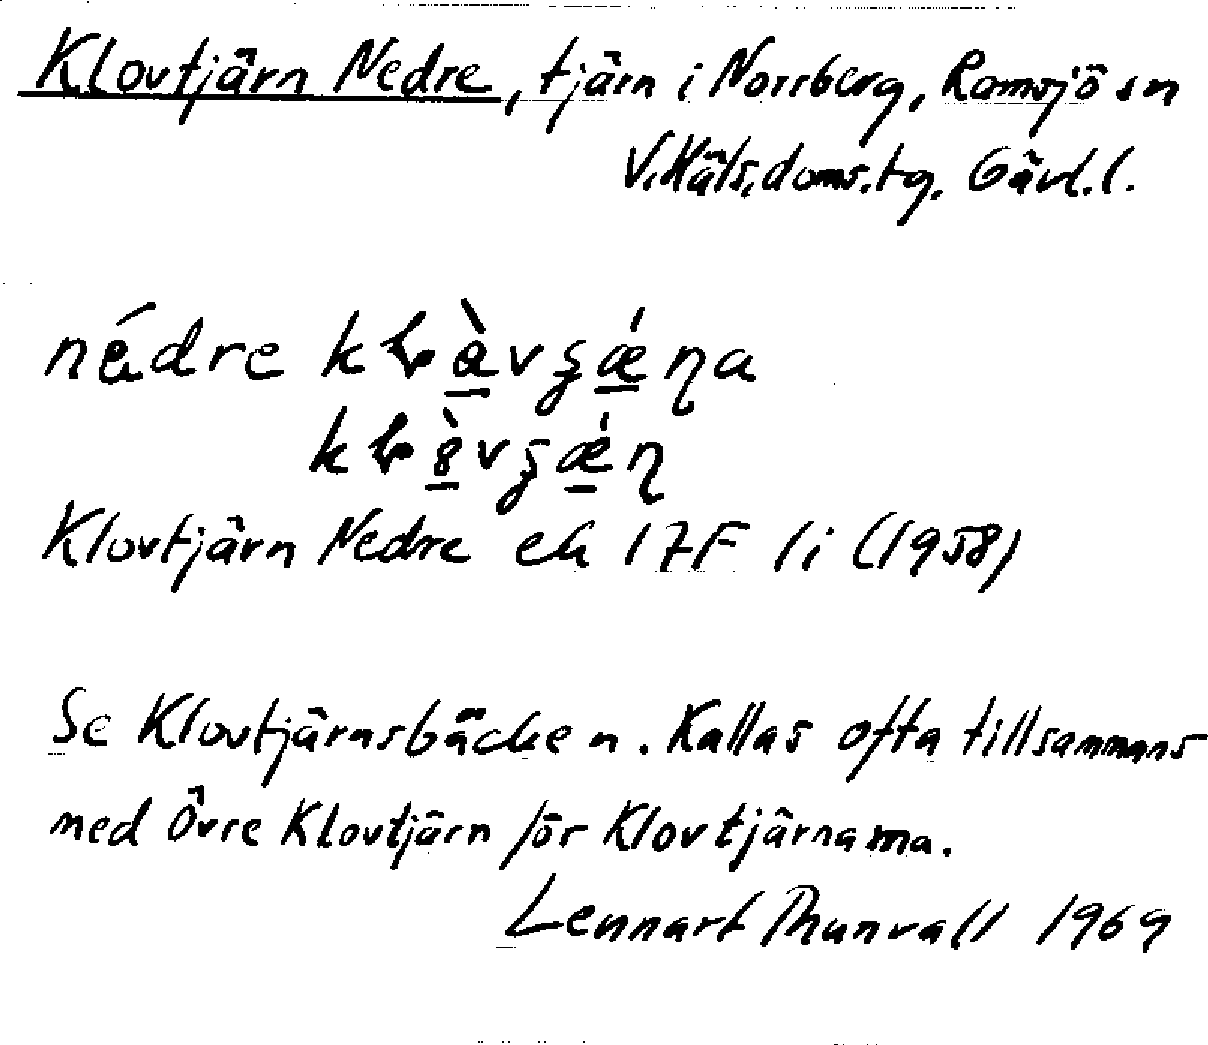 Klovtjärn Nedre, tjärn i Norrberg, Ramsjö sn
V. Häls. doms. tg. Gävl. l.
nédre
Klovtjärn Nedre ek 17F 1i (1958)
Se Klovtjärnsbäcken. Kallas ofta tillsammans
med Övre Klovtjärn för Klovtjärnarna.
Lennart Thunvall 1969